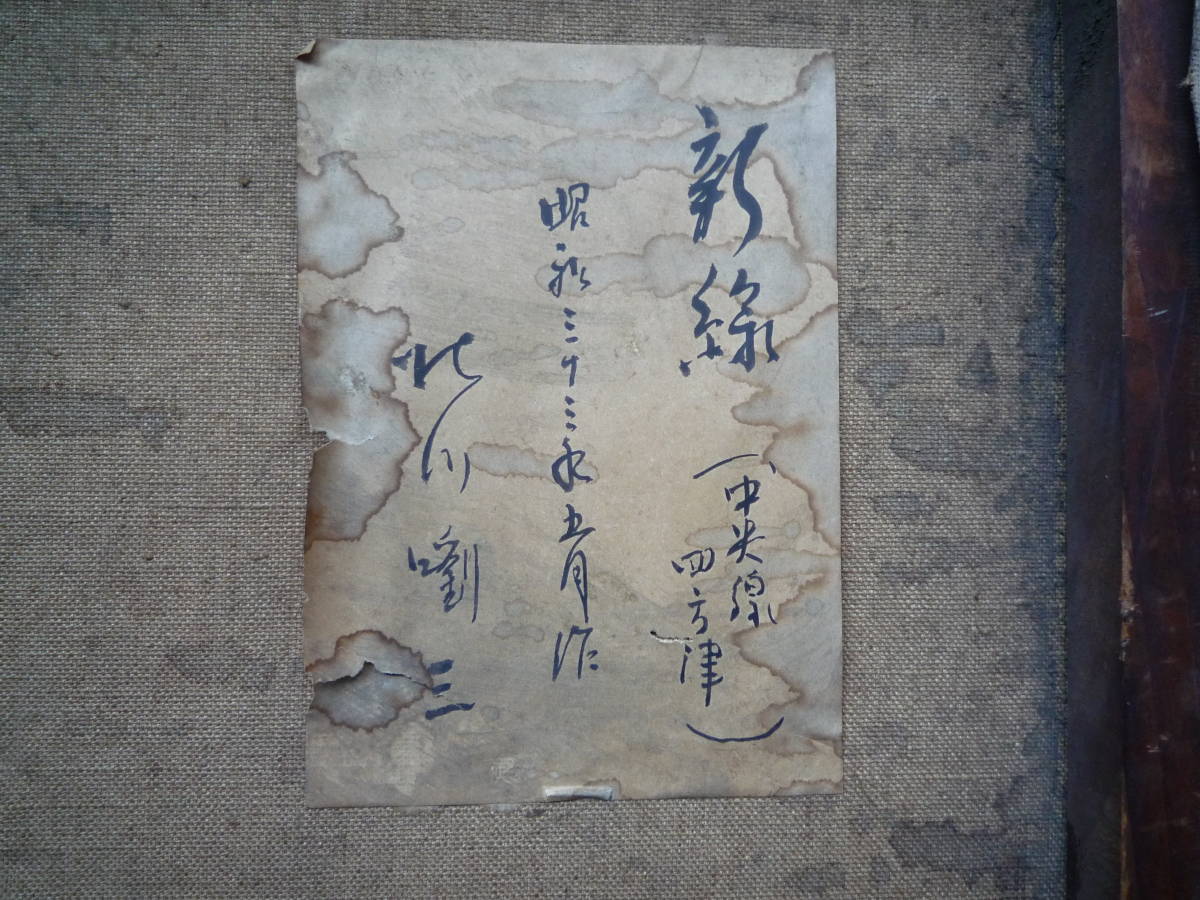 新緑
(中央線
四方津)
昭和三十三年五月作
北川嚠三